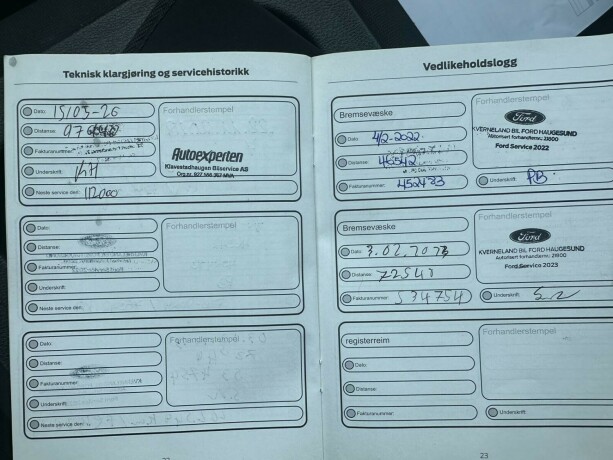 Teknisk klargjøring og servicehistorikk
Dato: 15/03-26
Distanse:
Fakturanummer:
Underskrift: KH
Neste service den: 112000
Forhandlerstempel
Autoexperten
Klavestadhaugen Bilservice AS
Dato:
Distanse:
Fakturanummer:
Underskrift:
Neste service den:
Forhandlerstempel
Dato:
Distanse:
Fakturanummer:
Underskrift:
Neste service den:
Forhandlerstempel
Vedlikeholdslogg
Bremsevæske
Dato: 4/2-2022.
Distanse: 46542
Fakturanummer: 452483
Forhandlerstempel
Ford
KVERNELAND BIL FORD HAUGESUND
Autorisert forhandlernr.: 21800
Ford Service 2022
Underskrift: RB.
Bremsevæske
Dato: 3.02.2023
Distanse: 72541
Fakturanummer: 534754
Forhandlerstempel
Ford
KVERNELAND BIL FORD HAUGESUND
Autorisert forhandlernr.: 21800
Ford Service 2023
Underskrift:
registerreim
Dato:
Distanse:
Fakturanummer:
Forhandlerstempel
Underskrift:
23